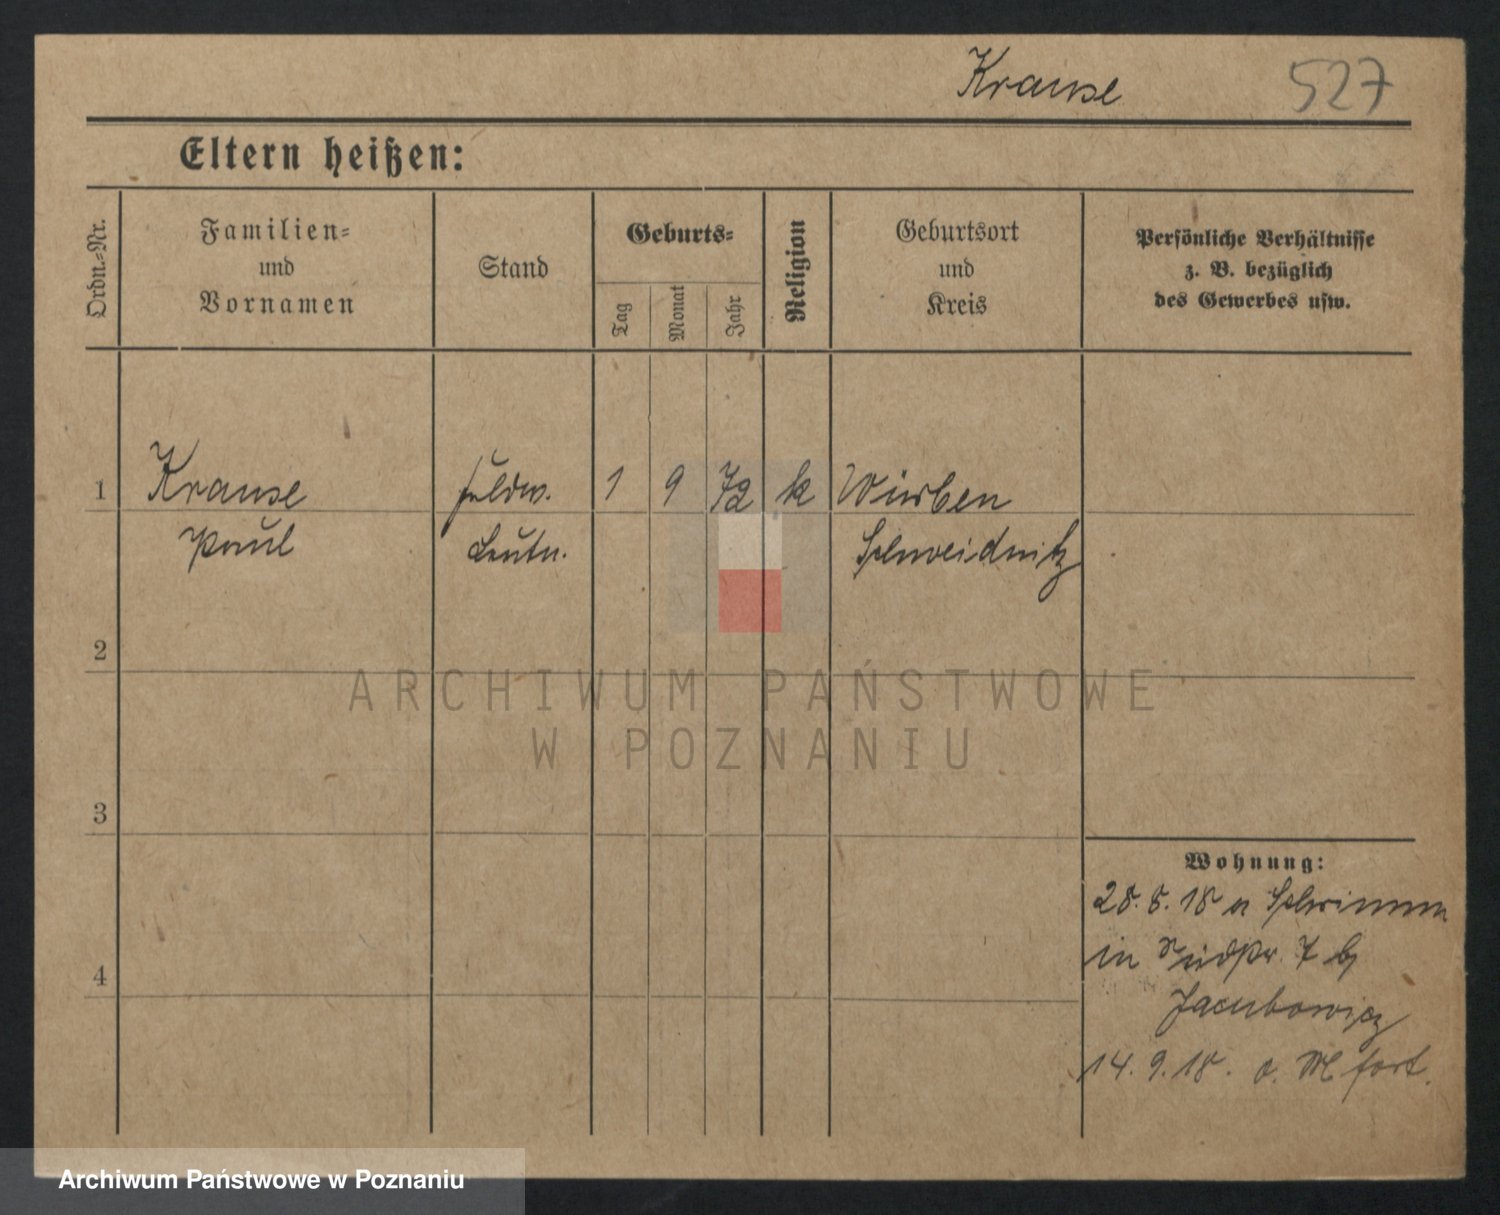 Krause 527
Eltern heißen:
Ordn.-Nr.
Familien-
und
Vornamen
Stand
Geburts-
Tag
Monat
Jahr
Religion
Geburtsort
und
Kreis
Persönliche Verhältnisse
z. B. bezüglich
des Gewerbes usw.
1 Krause Feldw. 1 9 72 k Würben
Paul Leutn. Schweidnitz
2
ARCHIWUM PAŃSTWOWE
W POZNANIU
3
Wohnung:
28.8.18 a Schrimm
in 7 b/
4
Jacubowicz
14.9.18. o. M fort.
Archiwum Państwowe w Poznaniu